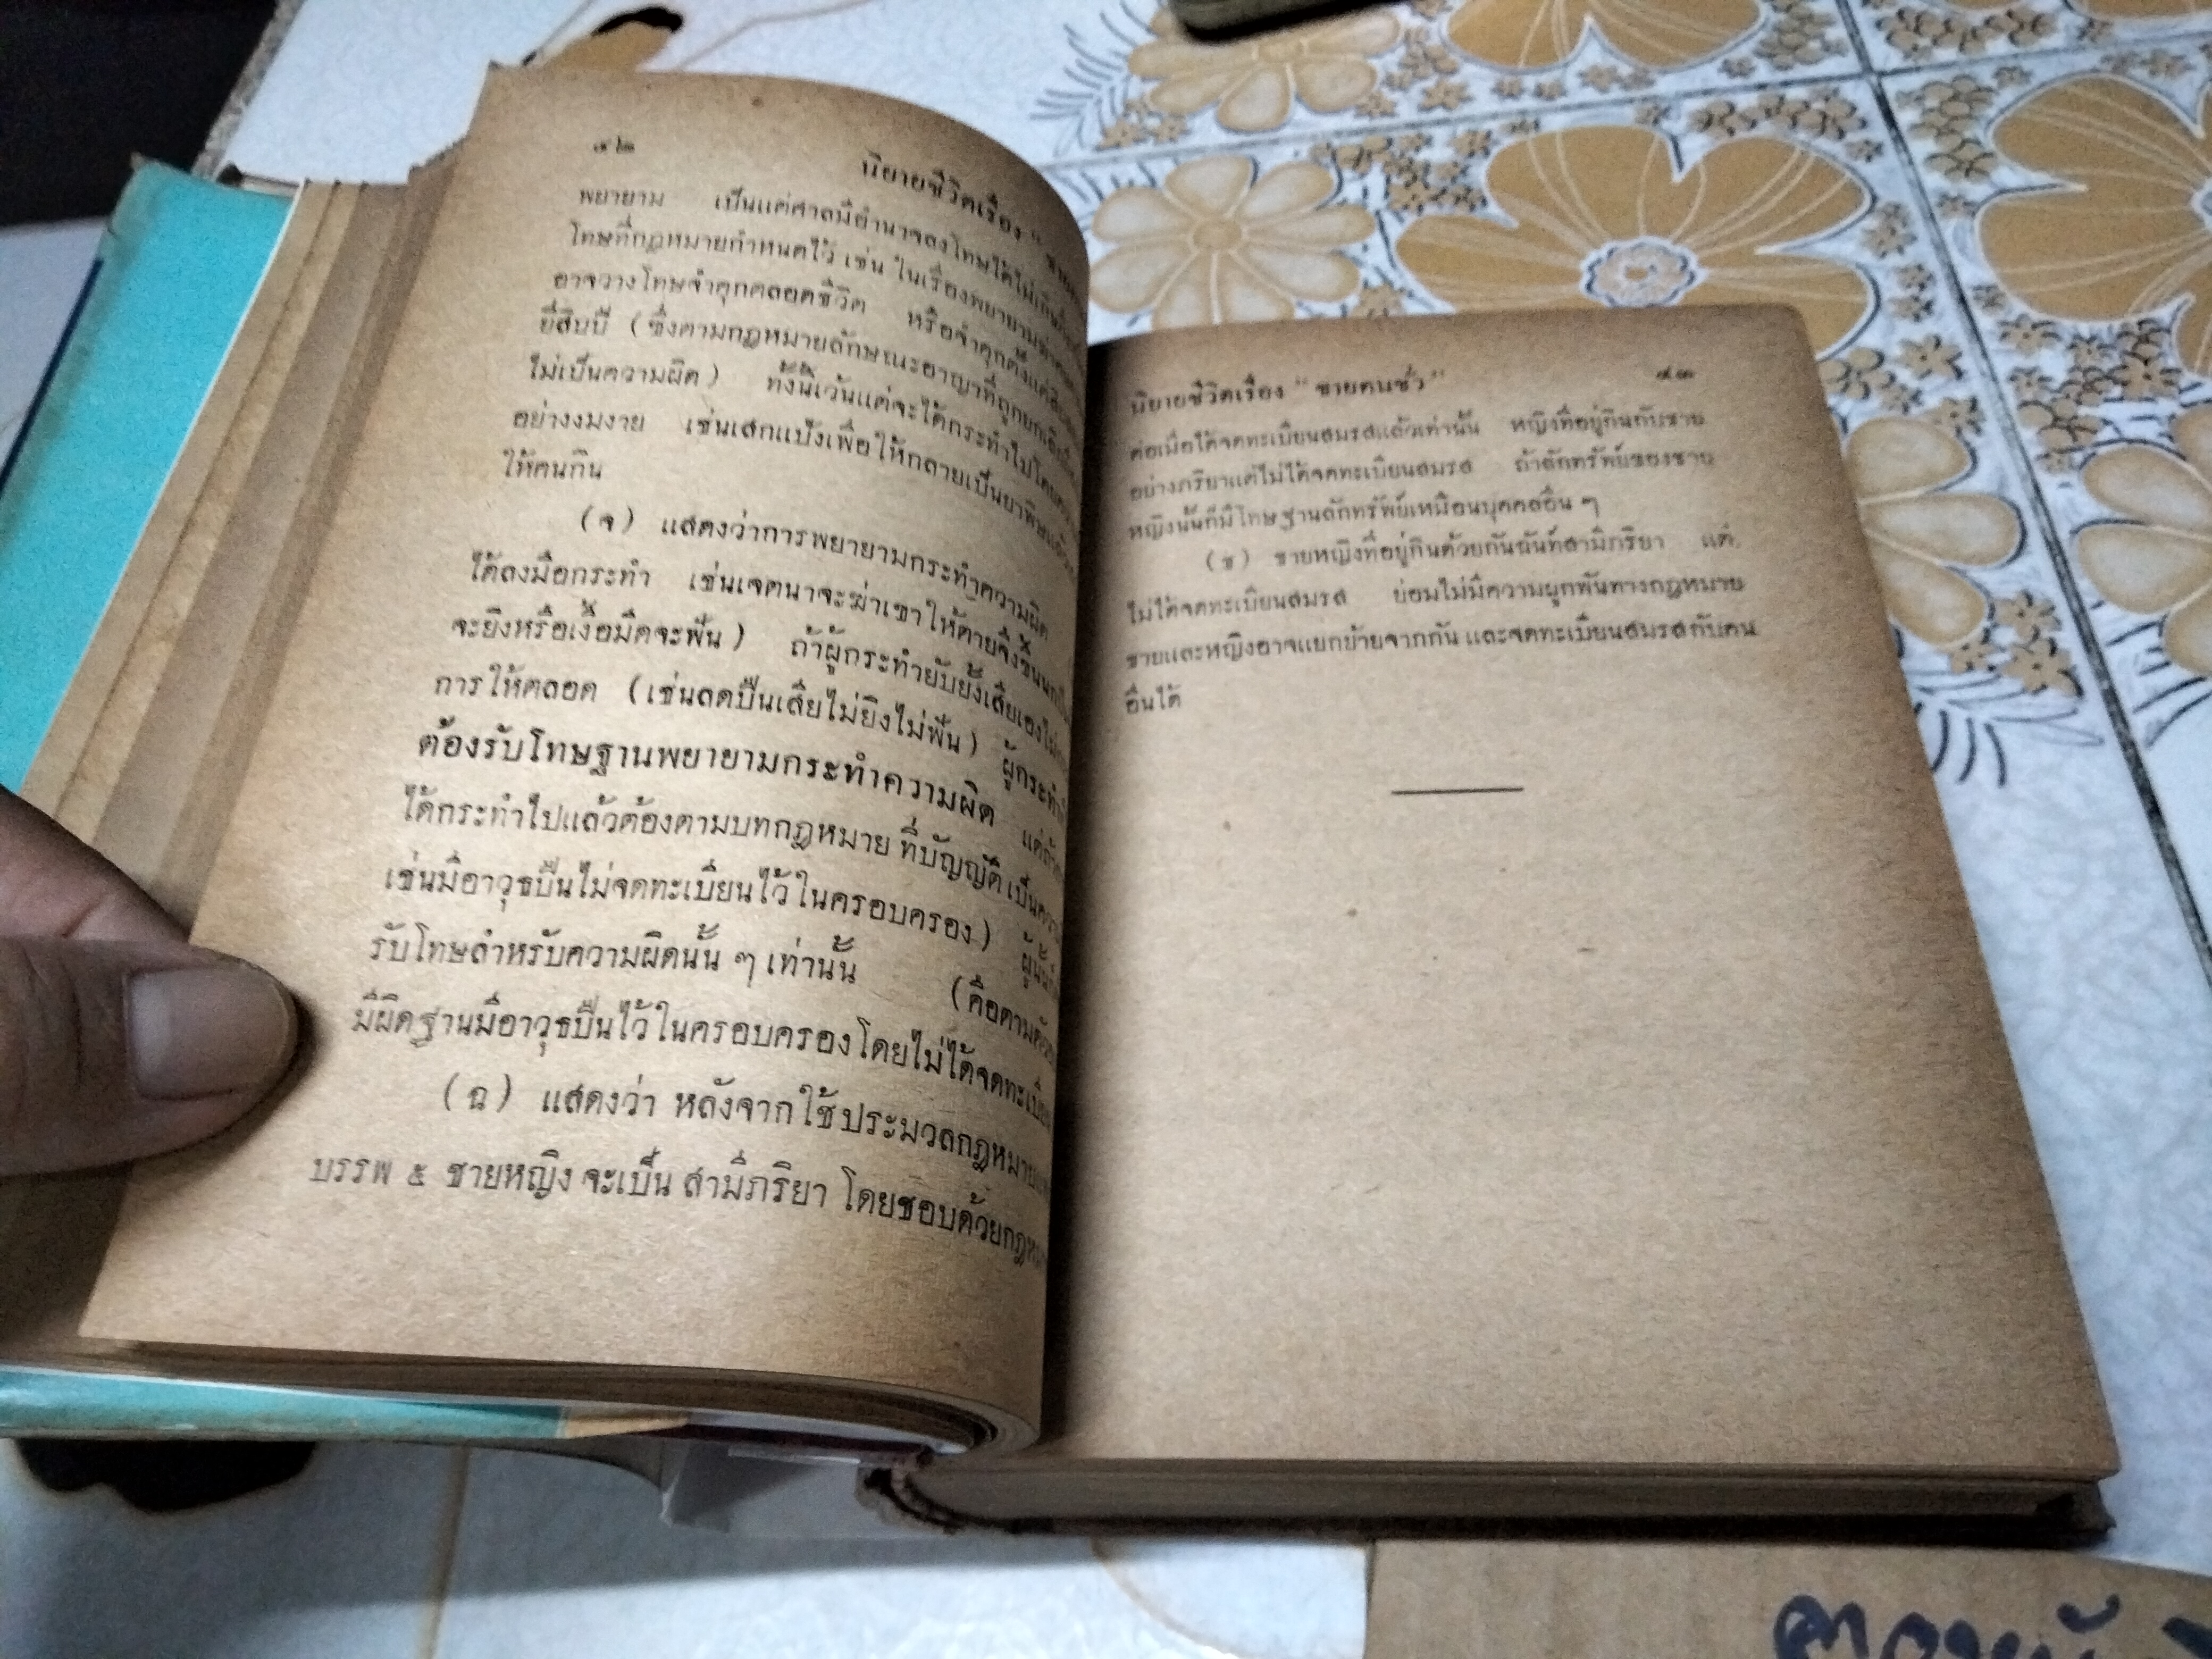 ๔๒
นิยายชีวิตเรื่อง "ชาย
พยายาม เป็นแต่ศาลมีอำนาจลงโทษได้ไม่เกิน
โทษที่กฎหมายกำหนดไว้ เช่น ในเรื่องพยายามฆ่าคน
อาจวางโทษจำคุกตลอดชีวิต หรือจำคุกตั้งแต่
ยี่สิบปี (ซึ่งตามกฎหมายลักษณะอาญาที่ถูกยกเลิก
ไม่เป็นความผิด) ทั้งนี้เว้นแต่จะได้กระทำไปโดยความ
อย่างงมงาย เช่นเสกแป้งเพื่อให้กลายเป็นยาพิษแล้ว
ให้คนกิน
(จ) แสดงว่าการพยายามกระทำความผิด
ได้ลงมือกระทำ เช่นเจตนาจะฆ่าเขาให้ตายจึงขึ้นนกปืน
จะยิงหรือเงื้อมีดจะฟัน) ถ้าผู้กระทำยับยั้งเสียเองไม่
การให้ตลอด (เช่นลดปืนเสียไม่ยิงไม่ฟัน) ผู้กระทำ
ต้องรับโทษฐานพยายามกระทำความผิด แต่ถ้า
ได้กระทำไปแล้วต้องตามบทกฎหมาย ที่บัญญัติ เป็นความ
เช่นมีอาวุธปืนไม่จดทะเบียนไว้ในครอบครอง) ผู้นั้น
รับโทษสำหรับความผิดนั้น ๆ เท่านั้น (คือตามตัวอย่าง
มีผิดฐานมีอาวุธปืนไว้ในครอบครองโดยไม่ได้จดทะเบียน
(ฉ) แสดงว่า หลังจากใช้ประมวลกฎหมาย
บรรพ ๕ ชายหญิง จะเป็น สามีภริยา โดยชอบด้วยกฎหมาย
นิยายชีวิตเรื่อง "ชายคนชั่ว"
๔๓
ต่อเมื่อได้จดทะเบียนสมรสแล้วเท่านั้น หญิงที่อยู่กินกับชาย
อย่างภริยาแต่ไม่ได้จดทะเบียนสมรส ถ้าลักทรัพย์ของชาย
หญิงนั้นก็มีโทษฐานลักทรัพย์เหมือนบุคคลอื่น ๆ
(ช) ชายหญิงที่อยู่กินด้วยกันฉันท์สามีภริยา แต่
ไม่ได้จดทะเบียนสมรส ย่อมไม่มีความผูกพันทางกฎหมาย
ชายและหญิงอาจแยกย้ายจากกัน และจดทะเบียนสมรสกับคน
อื่นได้